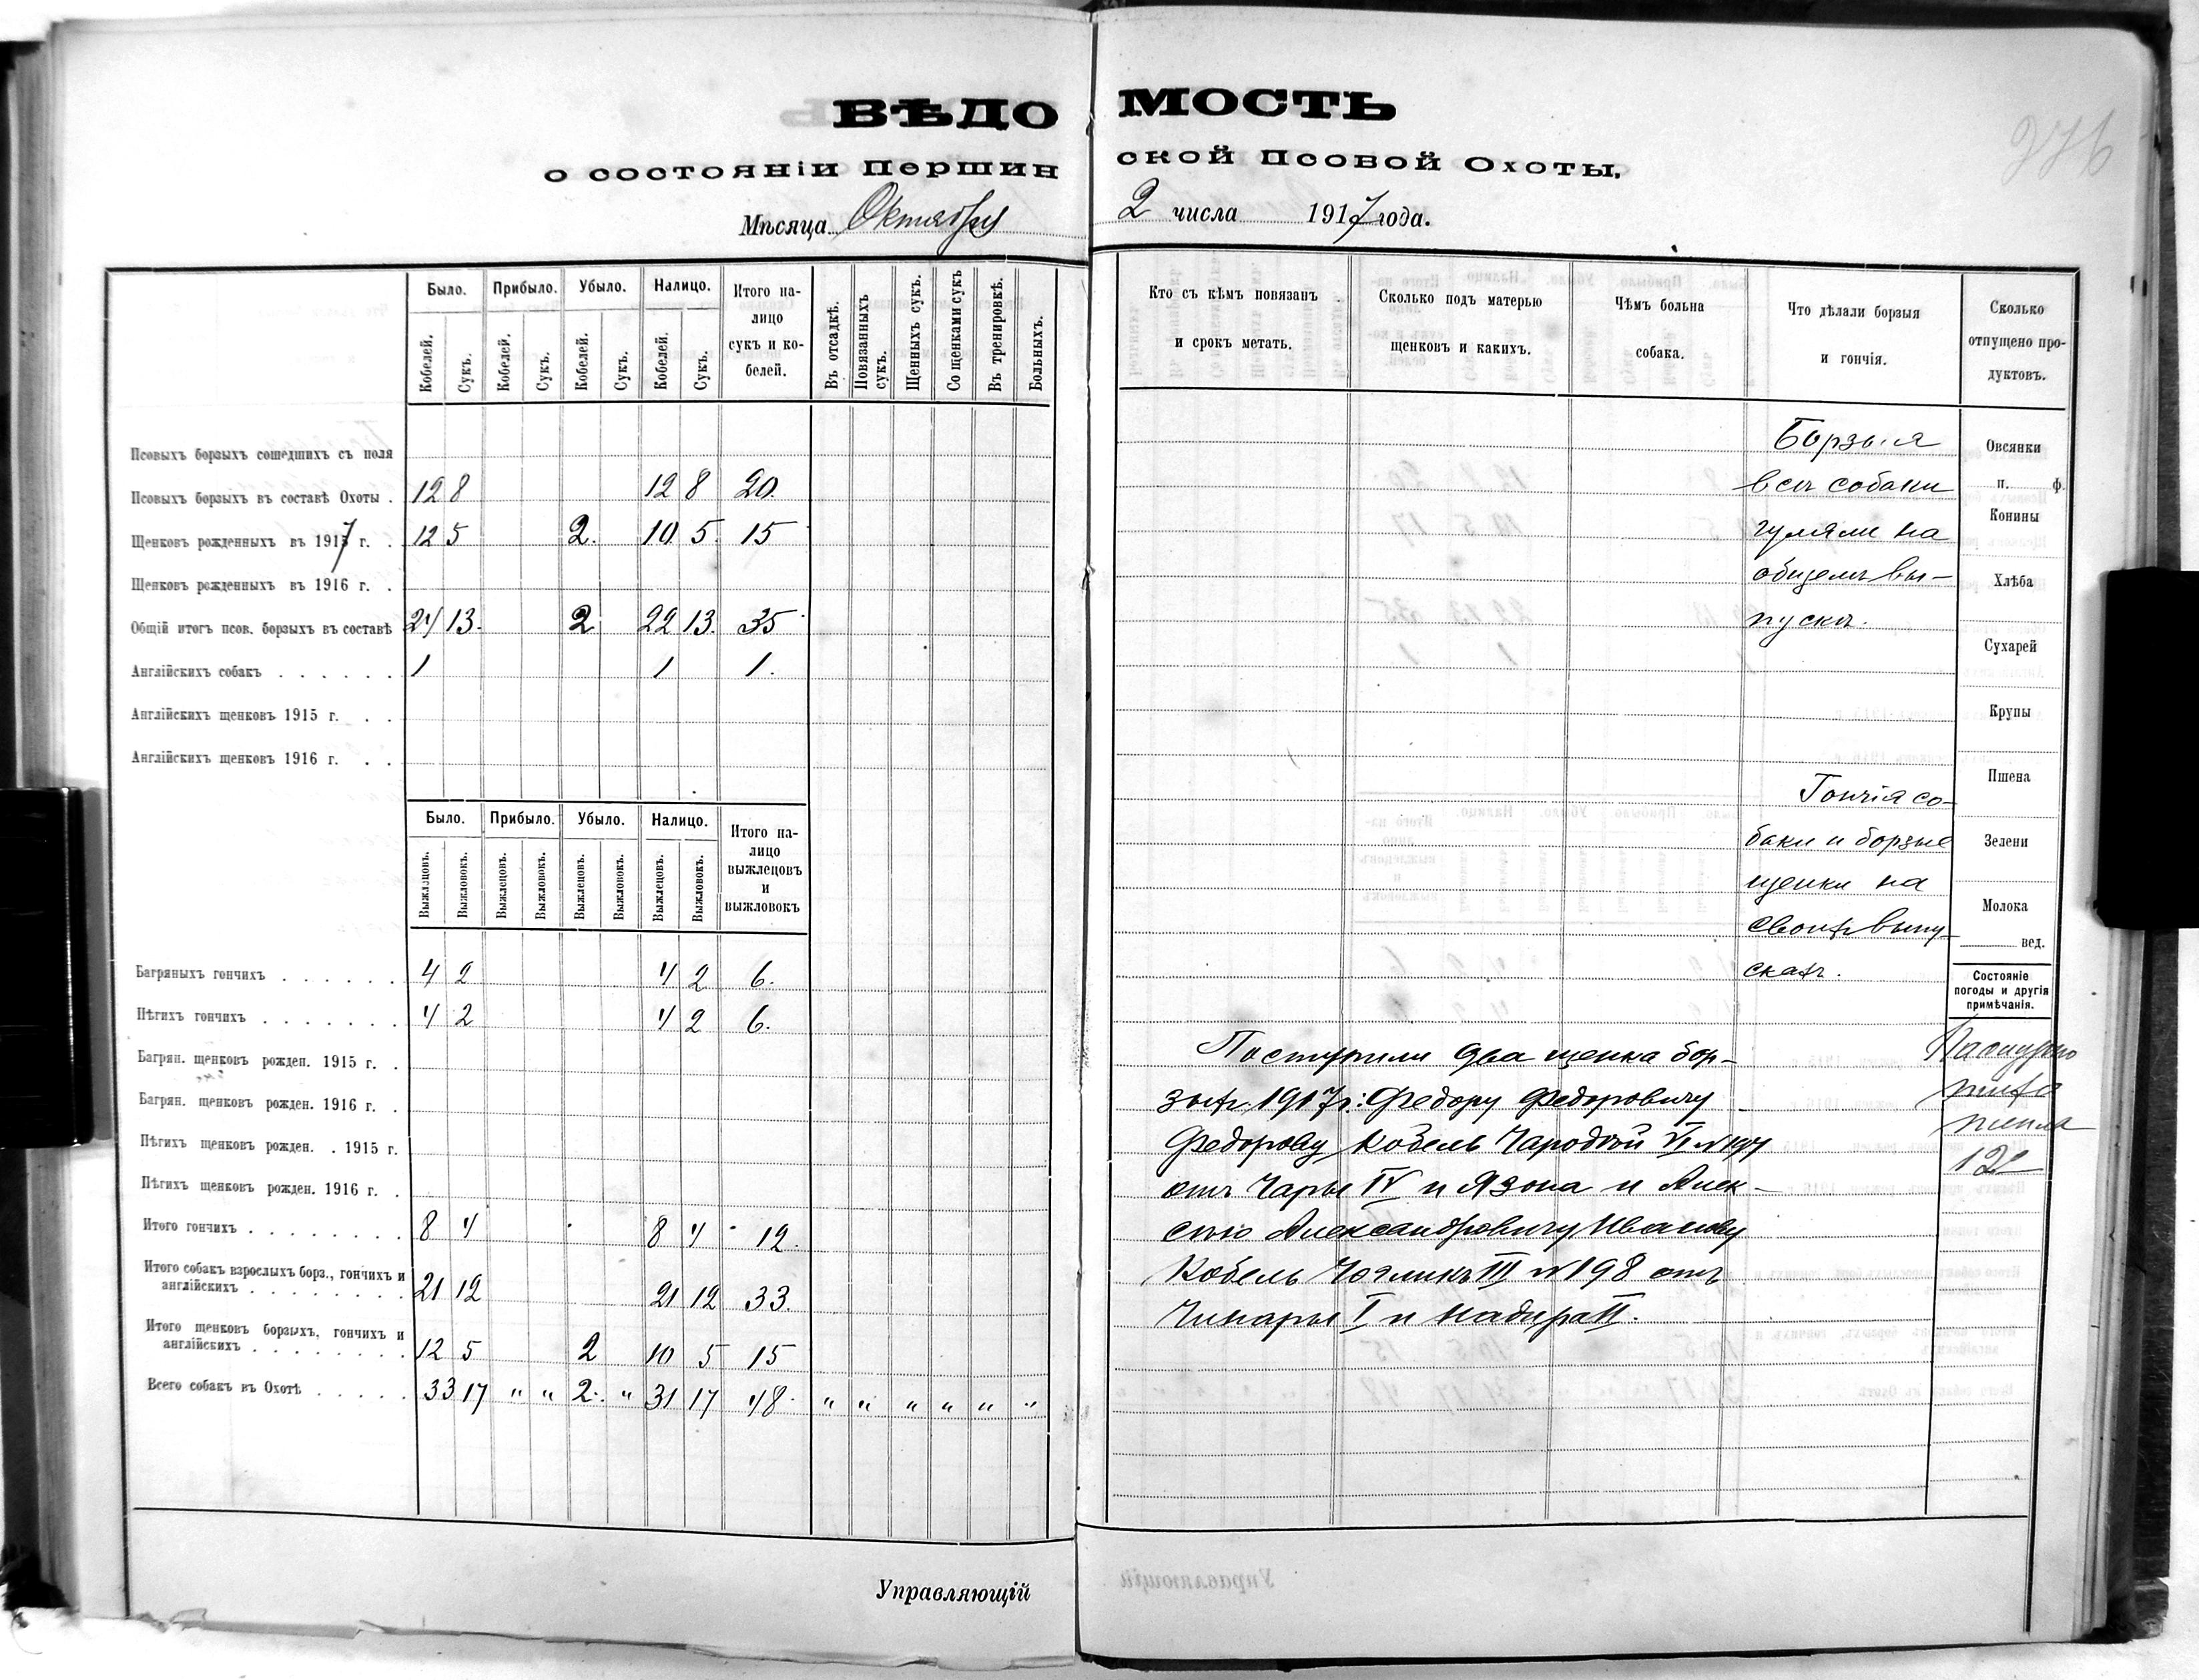 ВѢДО МОСТЬ
о состояніи Першин ской Псовой Охоты.
Мѣсяца Октября 2 числа 1917 года.
276
Было. Прибыло. Убыло. Налицо. Итого на-
лицо
сукъ и ко-
белей.
Кобелей. Сукъ. Кобелей. Сукъ. Кобелей. Сукъ. Кобелей. Сукъ.
Въ отсадкѣ. Повязанныхъ сукъ. Щенныхъ сукъ. Со щенками сукъ Въ тренировкѣ. Больныхъ.
Псовыхъ борзыхъ сошедшихъ съ поля
Псовыхъ борзыхъ въ составѣ Охоты . 12 8 12 8 20.
Щенковъ рожденныхъ въ 1917 г. . 12 5 2. 10 5. 15
Щенковъ рожденныхъ въ 1916 г. .
Общій итогъ псов. борзыхъ въ составѣ 24 13. 2 22 13. 35
Англійскихъ собакъ . . . . . . 1 1 1.
Англійскихъ щенковъ 1915 г. . .
Англійскихъ щенковъ 1916 г. . .
Было. Прибыло. Убыло. Налицо. Итого на-
лицо
выжлецовъ
и
выжловокъ
Выжлецовъ. Выжловокъ. Выжлецовъ. Выжловокъ. Выжлецовъ. Выжловокъ. Выжлецовъ. Выжловокъ.
Багряныхъ гончихъ . . . . . . 4 2 4 2 6.
Пѣгихъ гончихъ . . . . . . . 4 2 4 2 6.
Багрян. щенковъ рожден. 1915 г. .
Багрян. щенковъ рожден. 1916 г. .
Пѣгихъ щенковъ рожден. . 1915 г.
Пѣгихъ щенковъ рожден. 1916 г. .
Итого гончихъ . . . . . . . . 8 4 8 4 12.
Итого собакъ взрослыхъ борз., гончихъ и
англійскихъ . . . . . . . . 21 12 21 12 33.
Итого щенковъ борзыхъ, гончихъ и
англійскихъ . . . . . . . . 12 5 2 10 5 15
Всего собакъ въ Охотѣ . . . . . 33 17 " " 2. " 31 17 48. " " " " " "
Управляющій
Кто съ кѣмъ повязанъ
и срокъ метать.
Сколько подъ матерью
щенковъ и каких.
Чѣмъ больна
собака.
Что дѣлали борзыя
и гончія.
Сколько
отпущено про-
дуктовъ.
Борзыя
всѣ собаки
гуляли на
общемъ вы-
пускѣ.
Гончія со-
баки и борзые
щенки на
своихъ выпу-
скахъ.
Овсянки
п. ф.
Конины
Хлѣба
Сухарей
Крупы
Пшена
Зелени
Молока
вед.
Состояніе
погоды и другія
примѣчанія.
Пасмурно
12
Поступили два щенка бор-
зыхъ 1917 г.: Федору Федоровичу
Федорову кобель Чародѣй VI
отъ Чары IV и Язона и Алек-
сѣю Александровичу Иванову
Кобель Чегликъ III № 198 отъ
Чинары I и Надира II.